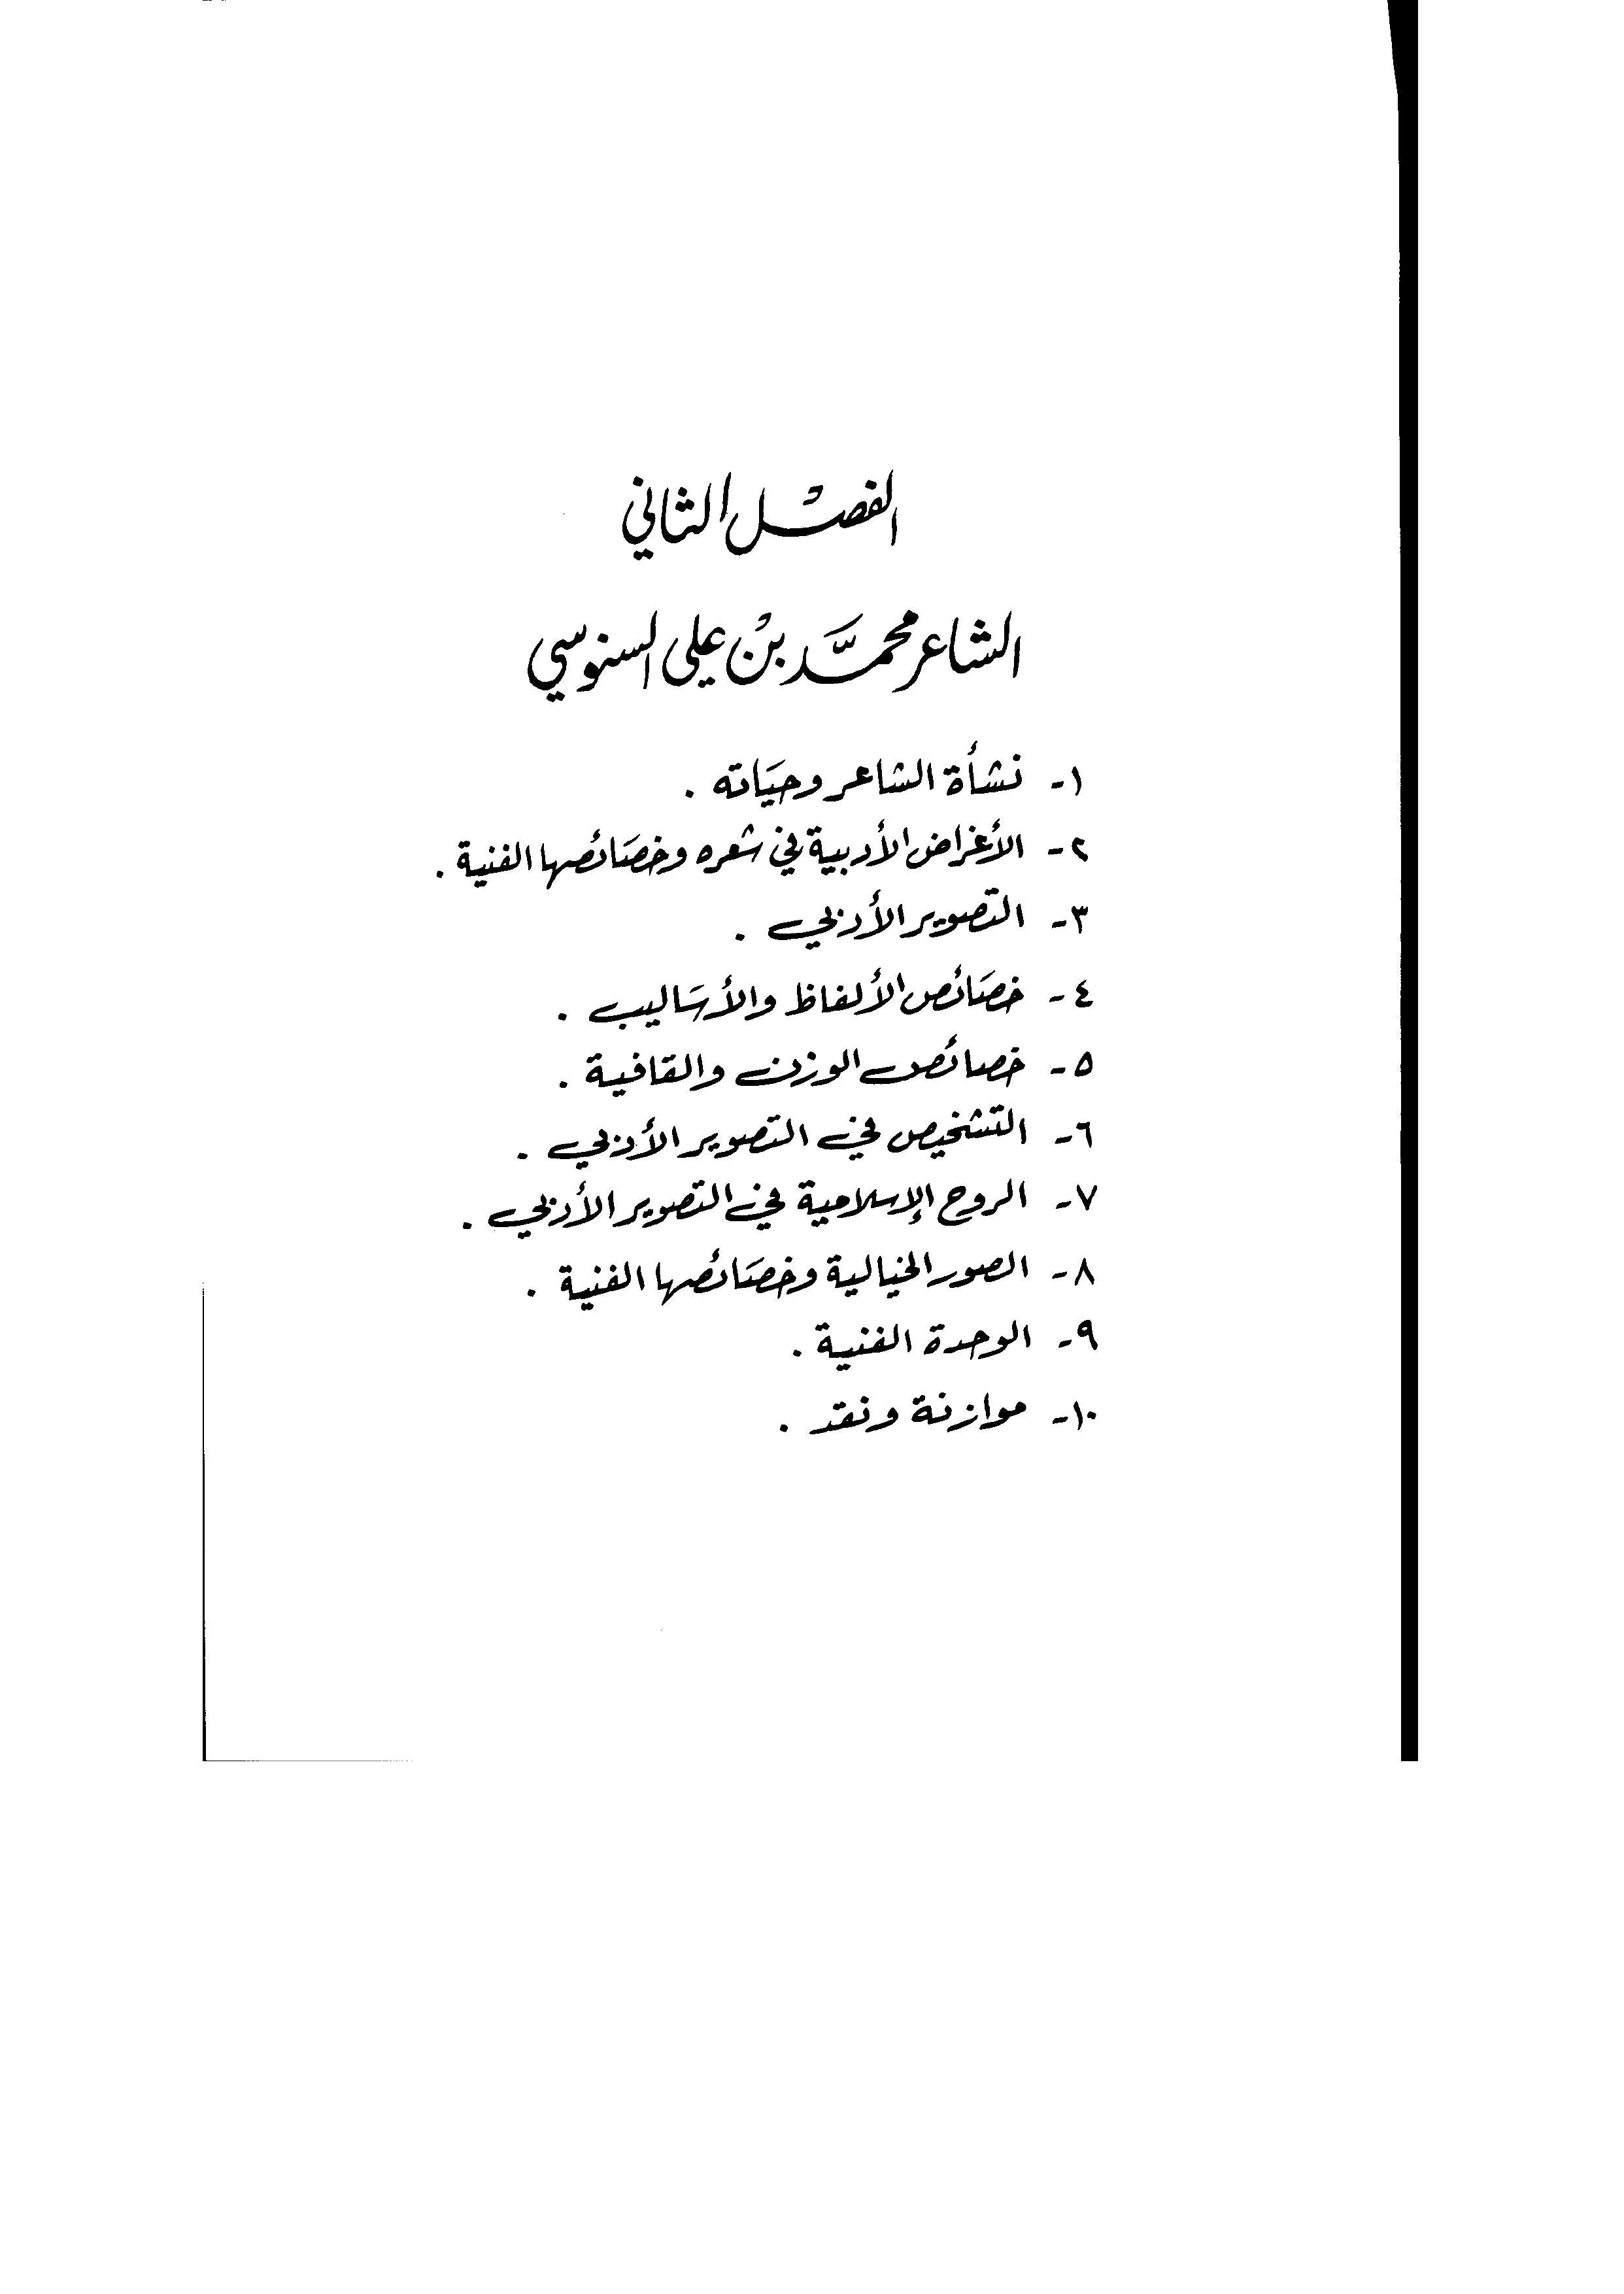 الفصْل الثاني
الشاعر محمَّد بنْ علي السنوسي
١- نشأة الشاعر وحيَاته .
٢- الأغراض الأدبية في شعره وخصَائصها الفنية .
٣- التصوير الأدبي .
٤- خصَائص الألفاظ والأسَاليب .
٥- خصائص الوزن والقافية .
٦- التشخيص في التصوير الأدبي .
٧- الروح الإسلامية في التصوير الأدبي .
٨- الصور الخيالية وخصَائصها الفنية .
٩- الوحدة الفنية .
١٠- موازنة ونقد .